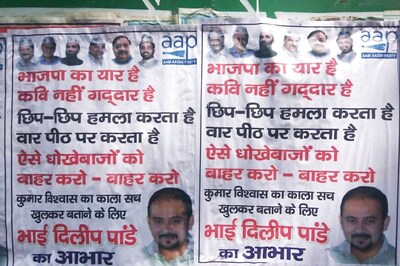 aap
AAM AADMI PARTY
भाजपा का यार है
कवि नहीं गद्दार है
छिप-छिप हमला करता है
वार पीठ पर करता है
ऐसे धोखेबाजों को
बाहर करो - बाहर करो
कुमार विश्वास का काला सच
खुलकर बताने के लिए
भाई दिलीप पांडे
का आभार
aap
AAM AADMI PARTY
भाजपा का यार है
कवि नहीं गद्दार है
छिप-छिप हमला करता है
वार पीठ पर करता है
ऐसे धोखेबाजों को
बाहर करो - बाहर करो
कुमार विश्वास का काला सच
खुलकर बताने के लिए
भाई दिलीप पांडे
का आभार